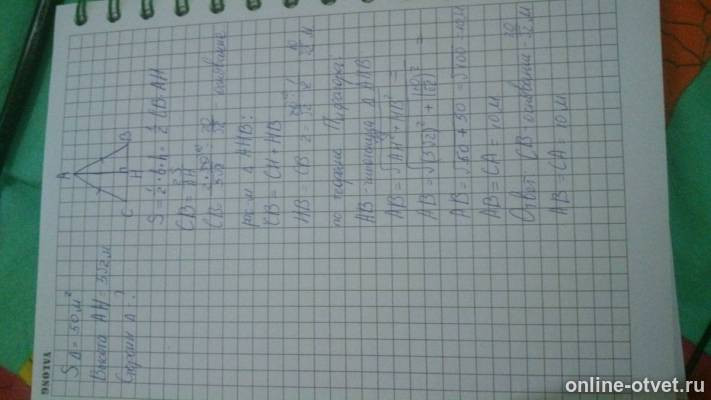 YALONG
S△ = 50 м²
Высота AH = 5√2 м
Стороны △ ?
A
C H B
S = 1/2 · b · h = 1/2 CB · AH
CB = 2S/AH
CB = 2·50/5√2 = 20/√2 основание
рас-м △ AHB:
CB = CH + HB
HB = CB : 2 = 20/√2 · 1/2 = 10/√2 м
по теореме Пифагора
AB - гипотенуза △ AHB
AB = √AH² + HB² =
AB = √(5√2)² + (10/√2)² =
AB = √50 + 50 = √100 = 10 м
AB = CA = 10 м
Ответ: CB основание = 20/√2 м
AB = CA = 10 м
online-otvet.ru